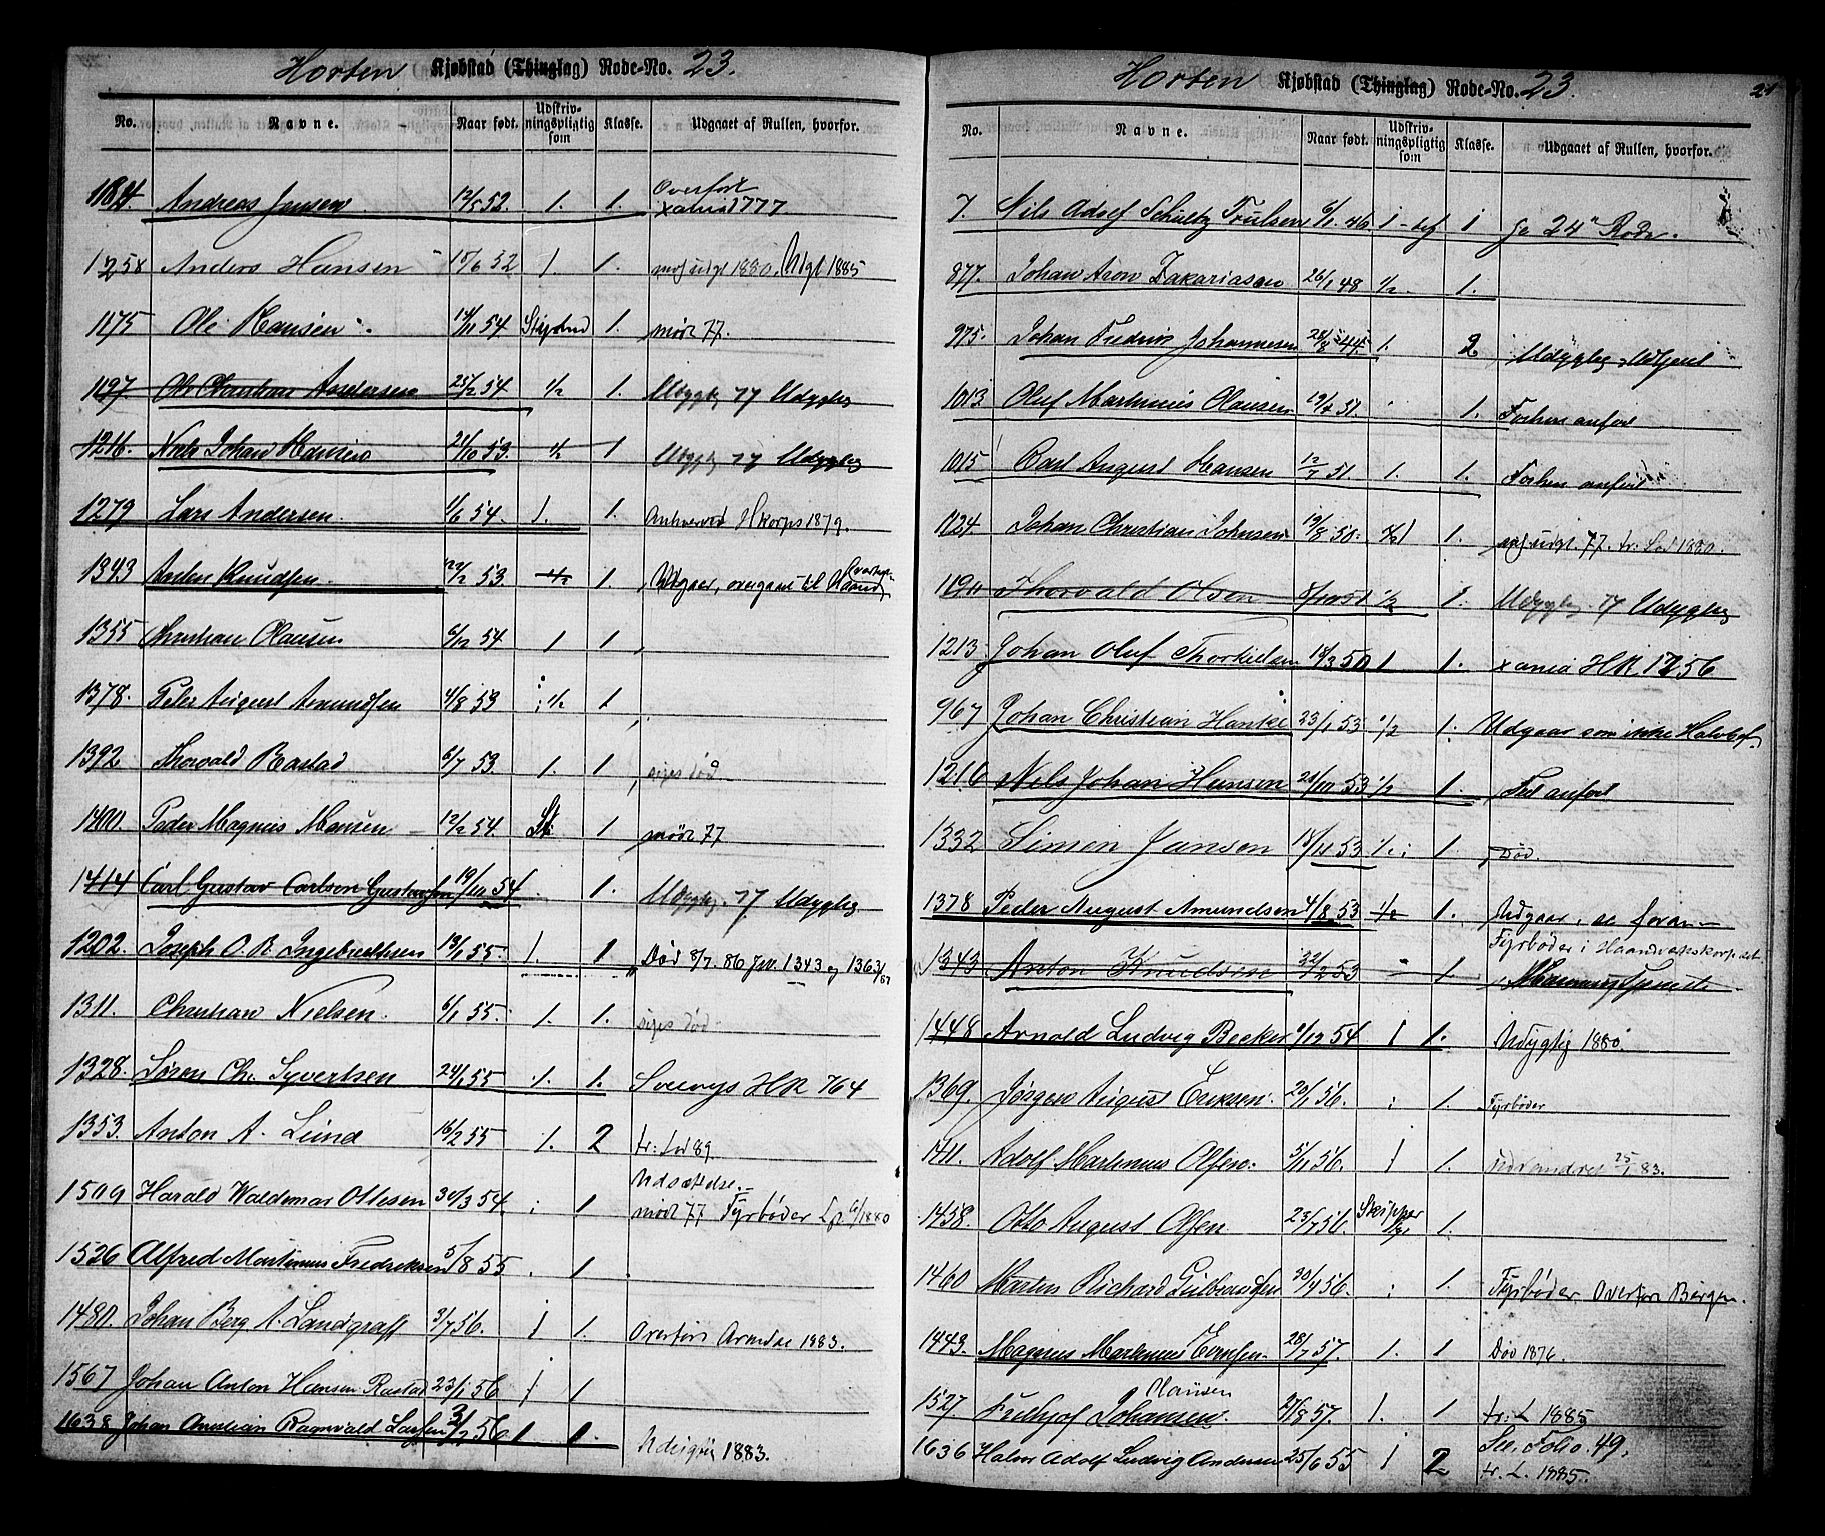 Horten Kjøbstad (Thinglag) Rode-No. 23.
No. Navne. Naar født. Udskrivningspligtig som Klasse. Udgaaet af Rullen, hvorfor.
1184 Andreas Jensen 12/5 52. 1. 1. Overført xania 1777.
1258 Anders Hansen 15/6 52 1. 1. 1880. Udgl 1885
1175 Ole Hansen 14/11 54 1. mødt 77.
1197. Ole Christian Andersen 25/2 54 1/2 1. Udygtig 77 Udygtig
1216. Niels Johan Hansen 21/10 53. 1/2 1 Udygtig 77 Udygtig
1279 Lars Andersen 1/6 54. 1. 1. Anhverved Hkorps 1879.
1343 Anton Knudsen 22/2 53 1/2 1. Udgaar, overgaaet til Haandv
1355 Christian Olausen 6/12 54 1 1
1378. Peter August Amundsen 4/8 53 1/2 1
1392 Thorvald Rastad 6/7 53. 1. 1 siges død
1400. Peder Magnus Hansen 12/2 54. St. 1 mødt 77
1414 Carl Gustav Carlsen Gustavsen 19/10 54 1. Udygtig 77 Udygtig
1202. Joseph O. B. Ingebrethsen 13/1 55. 1. 1 Død 8/7. 86 Jvr. 1343 og 1363/87
1311. Christian Nielsen. 6/1 55. 1. 1. siges død
1328. Søren Chr. Syvertsen 24/1 55 1. 1. HR 764
1353. Anton A. Lund 16/2 55 1. 2 tr: Lod 89.
1509 Harald Waldemar Ottesen 30/3 54. 1 Udsættelse. mødt 77 Fyrbøder Lp 6/1880
1526 Alfred Martinius Fredriksen 5/8 55 1.
1480. Johan Berg A. Landgraff 3/7 56. 1 1. Overført Arendal 1883.
1567 Johan Anton Hansen Rastad 23/1 56 1 1
1638 Johan Christian Ragnvald Larsen 3/2 56 1 1. Udygtig 1883.
Horten Kjøbstad (Thinglag) Rode-No. 23. 21
No. Navne. Naar født. Udskrivningspligtig som Klasse. Udgaaet af Rullen, hvorfor.
7. Nils Adolf Schultz Trulsen 6/11. 46. 1 - bef 1 se 24de Rode.
877. Johan Aron Zakariasen 26/1 48 1/2 1.
975. Johan Fredrik Johannesen 28/8 44 1. 2 Udygtig Udtjent
1013. Oluf Martinius Olausen 19/4 51. 1. Forhen anført
1015 Carl August Hansen 12/7 51. 1. 1. Forhen anført
1124. Johan Christian Johnsen 19/8 50. 1. udgl. 77. tr: Lod 1880.
1190 Thorvald Olsen 1/2 1. Udygtig 77 Udygtig
1213. Johan Oluf Thorkielsen 18/3 50 1 1. xania HR 1256
967 Johan Christian Hanke 23/1 53 1/2 1. Udgaar som ikke Halvbef.
1216 Nils Johan Hansen 21/10 53 1/2 1. Feil anført
1332 Simen Jansen 18/11 53 1/2 1. Død.
1378 Peder August Amundsen 4/8 53 1/2 1. Udgaar, se foran
1343 Anton Knudsen 22/2 53 1. Fyrbøder i Haandværkskorpset
1448 Arnold Ludvig Becker 9/12 54 1 1. Udygtig 1880.
1369. Jørgen August Eriksen. 20/1 56. 1. Fyrbøder
1411. Adolf Martinius Olsen. 5/11 56. 1 1. udvandret 25/1 83.
1458. Otto August Olsen 23/7 56. Skipper 1.
1460 Martin Richard Gulbrandsen 20/9 56. 1. Fyrbøder. Overført Bergen.
1443. Magnus Martinius Evensen 28/7 57. 1. 1 Død 1876.
1527. Frithjof Johansen Hansen 7/8 57. 1. 1 tr: L 1885
1636 Halvor Adolf Ludvig Andersen 25/6 55 1 2 See Folio 49, tr. L. 1885.